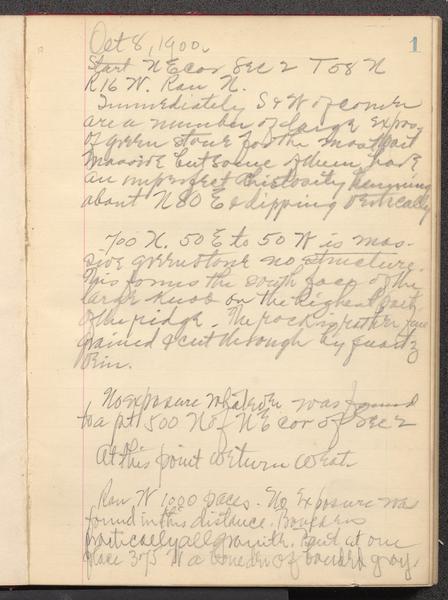 1
Oct 8, 1900.
Start N E cor Sec 2 T 58 N
R 16 W. Ran N.
Immediately S & W of corner
are a number of large expos
of green stone for the most part
massive but some of them have
an imperfect schistosity running
about N 80 E & dipping vertically
700 N. 50 E to 50 W is mas-
sive greenstone no structure.
This forms the south face of the
large knob on the highest part
of the ridge. The rock is rather fine
grained & cut through by quartz
vein.
No exposure whatever was found
to a pt 1500 N of N E cor of Sec 2
At this point we turn west.
Ran W 1000 paces. No Exposure was
found in this distance. Boulders
practically all granite. But at one
place 375 W a boulder of banded gray